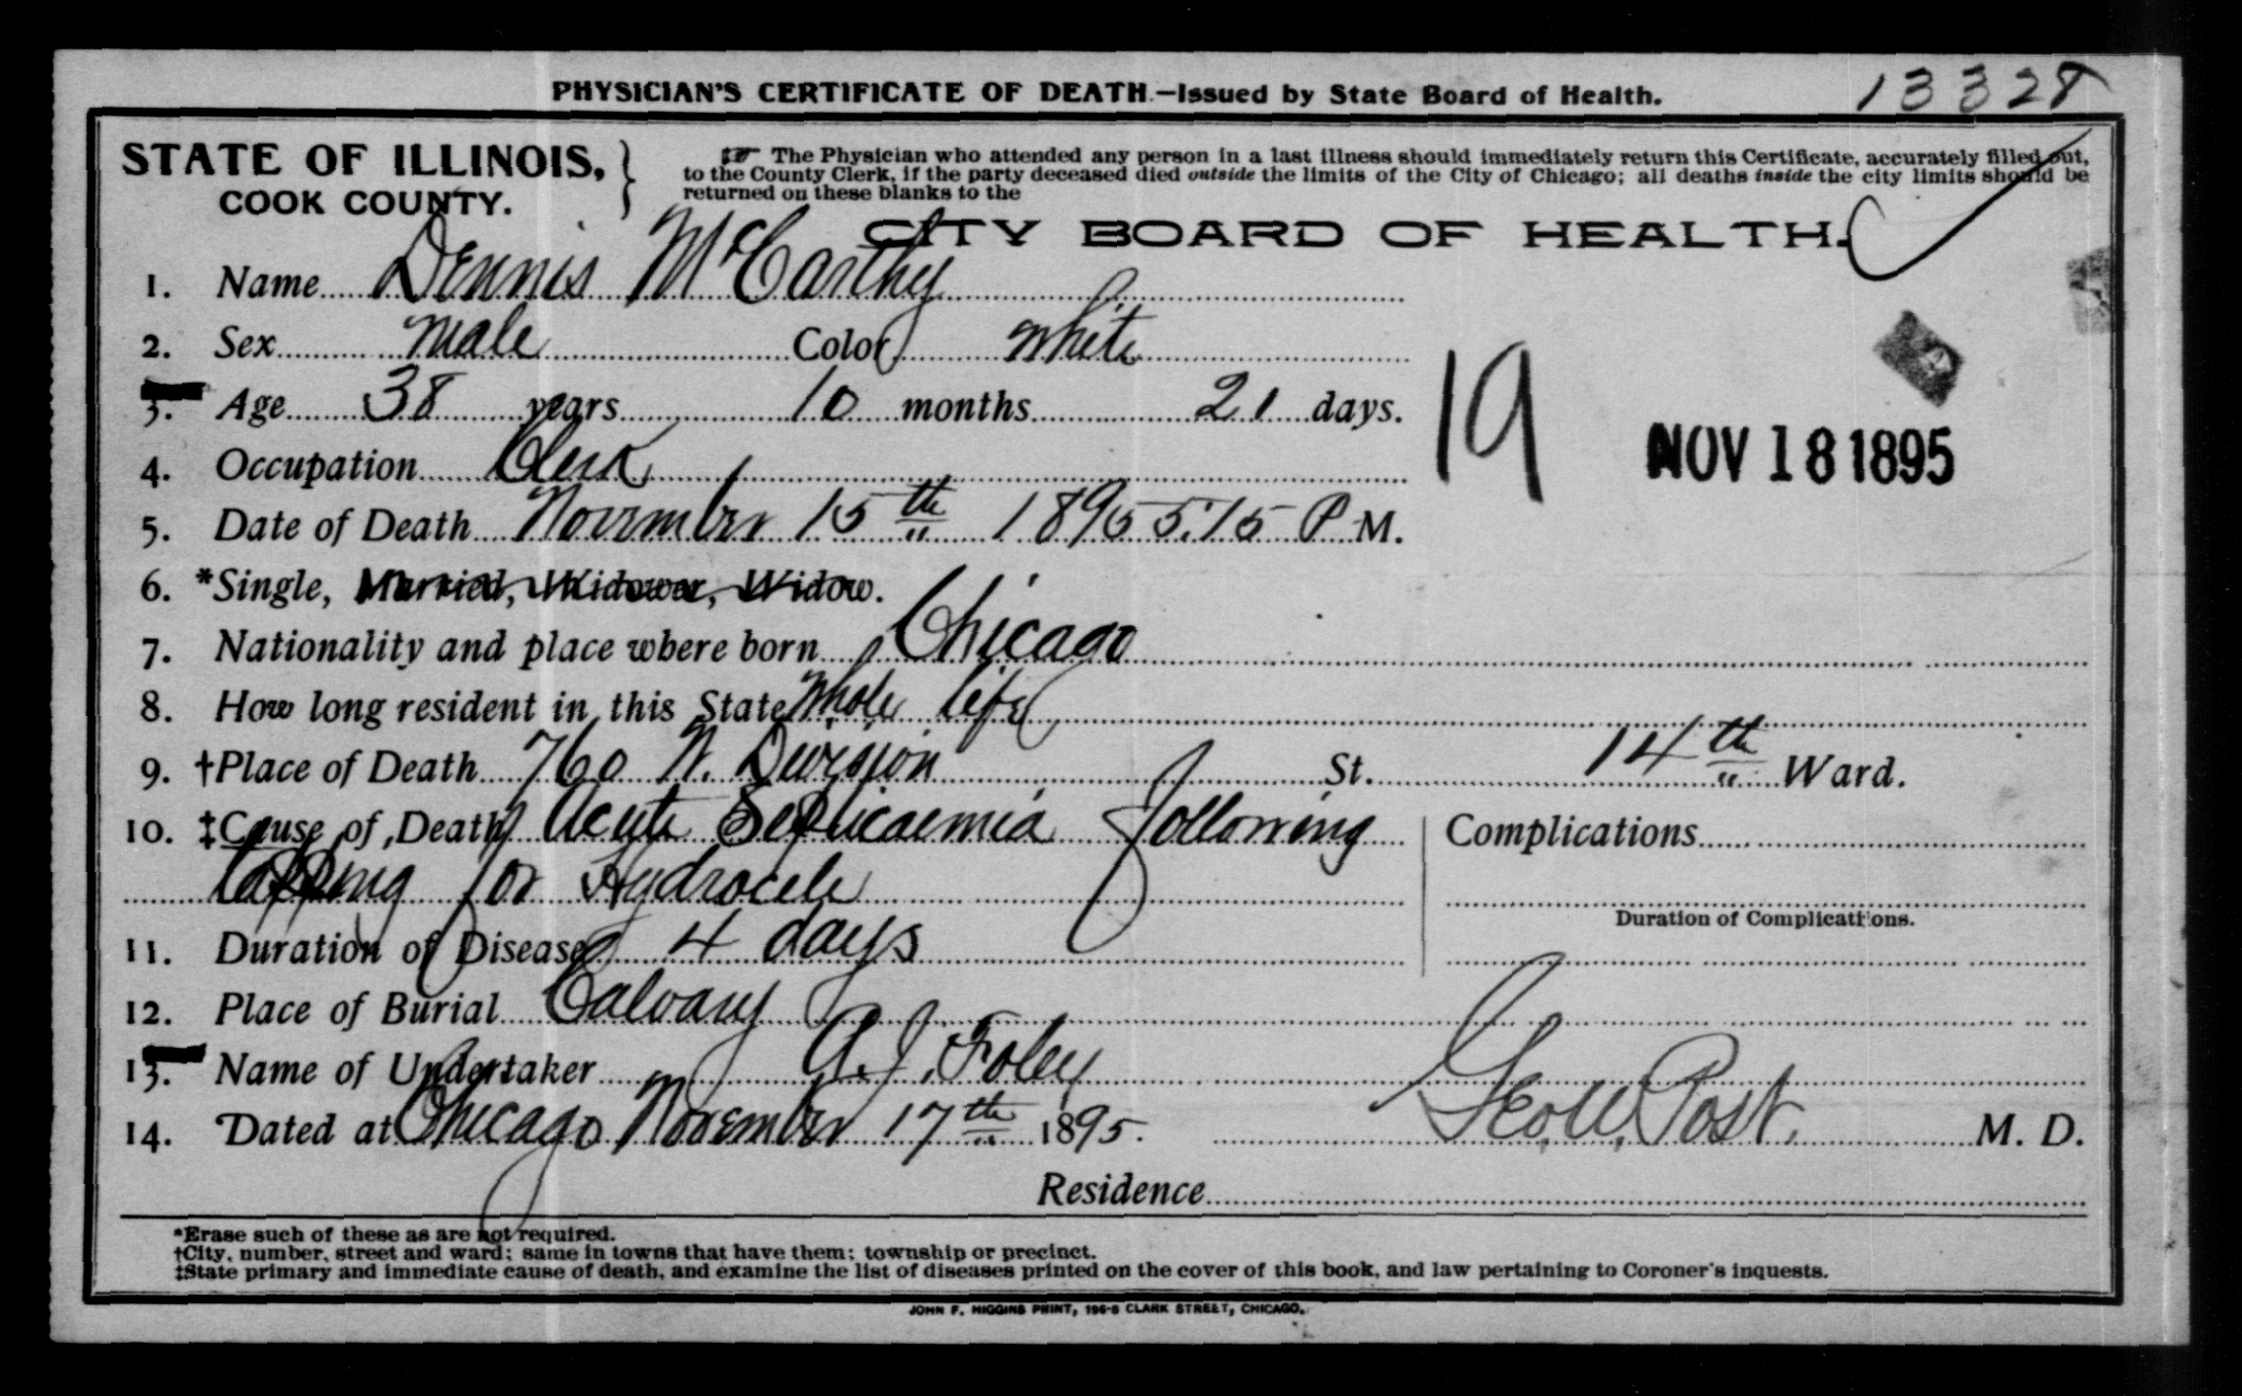 PHYSICIAN'S CERTIFICATE OF DEATH.—Issued by State Board of Health. 13328
STATE OF ILLINOIS,
COOK COUNTY.
☞ The Physician who attended any person in a last illness should immediately return this Certificate, accurately filled out,
to the County Clerk, if the party deceased died outside the limits of the City of Chicago; all deaths inside the city limits should be
returned on these blanks to the
CITY BOARD OF HEALTH.
1. Name Dennis McCarthy
2. Sex Male Color White
3. Age 38 years 10 months 21 days.
19
NOV 18 1895
4. Occupation Clerk
5. Date of Death November 15th 1895 5:15 P M.
6. *Single, Married, Widower, Widow.
7. Nationality and place where born Chicago
8. How long resident in this State Whole life
9. †Place of Death 760 W. Division St. 14th Ward.
10. ‡Cause of Death Acute Septicaemia following Complications
tapping for Hydrocele
Duration of Complications.
11. Duration of Disease 4 days
12. Place of Burial Calvary
13. Name of Undertaker A. J. Foley
14. Dated at Chicago November 17th 1895. Geo. W. Post M. D.
Residence
*Erase such of these as are not required.
†City, number, street and ward; same in towns that have them; township or precinct.
‡State primary and immediate cause of death, and examine the list of diseases printed on the cover of this book, and law pertaining to Coroner's inquests.
JOHN F. HIGGINS PRINT, 196-8 CLARK STREET, CHICAGO.